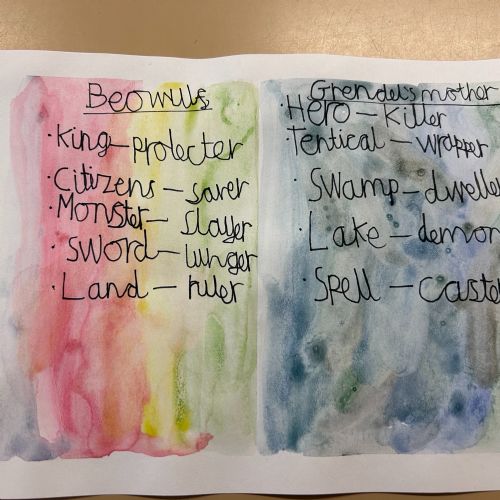 Beowulf
· King – protecter
· Citizens – saver
· Monster – slayer
· Sword – lunger
· Land – ruler
Grendels mother
· Hero – Killer
· Tentical – wrapper
· Swamp – dwelle
· Lake – demon
· Spell – caste